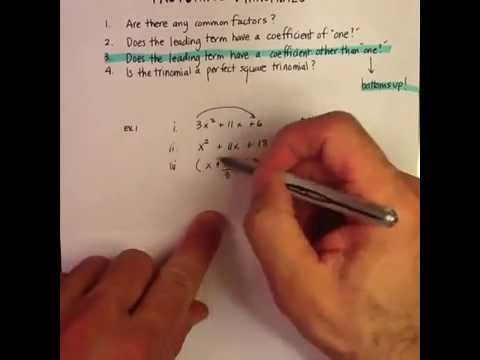 FACTORING TRINOMIALS
1. Are there any common factors?
2. Does the leading term have a coefficient of "one?"
3. Does the leading term have a coefficient other than "one?"
4. Is the trinomial a perfect square trinomial?
bottoms up!
EX.1 i. 3x² + 11x + 6
ii. x² + 11x + 18
iii. (x + 
3